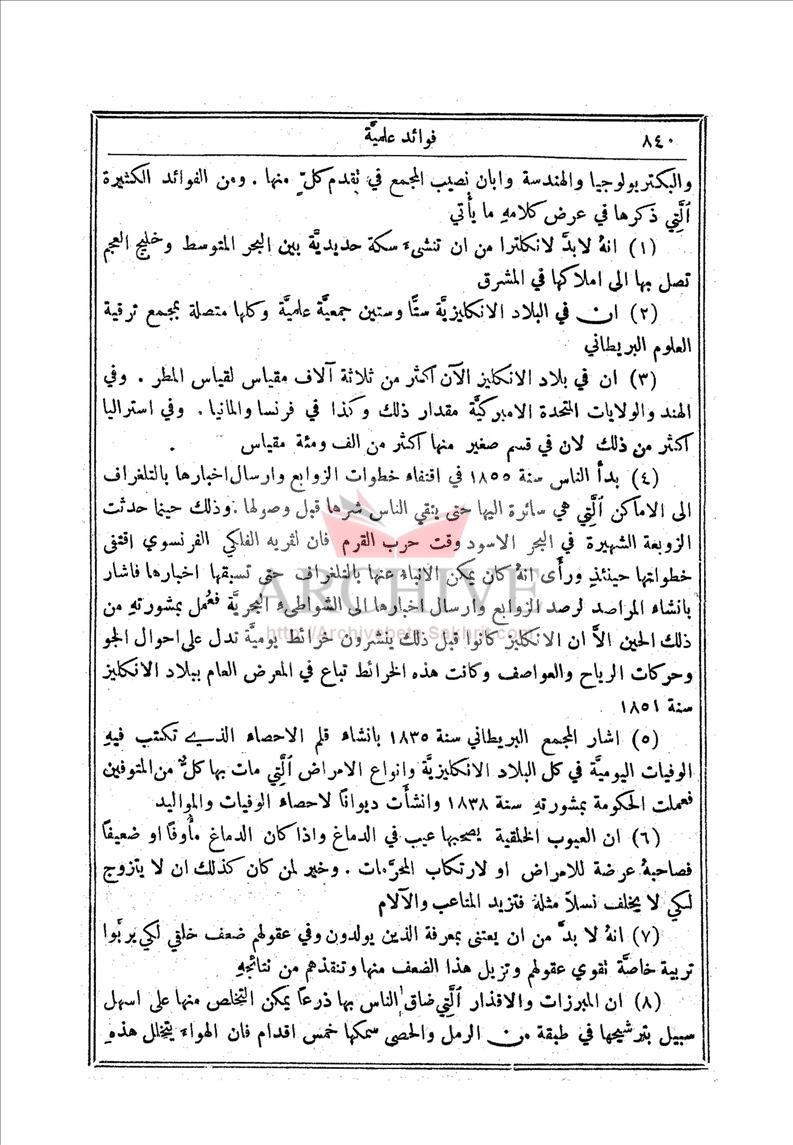 ٨٤٠
فوائد علميَّة
والبكتريولوجيا والهندسة وابان نصيب المجمع في تقدم كلٍّ منها . ومن الفوائد الكثيرة
ٱلَّتِي ذكرها في عرض كلامهِ ما يأْتي
(١) انهُ لا بدَّ لانكلترا من ان تنشىءَ سكة حديديَّة بين البحر المتوسط وخليج العجم
تصل بها الى املاكها في المشرق
(٢) ان في البلاد الانكليزيَّة ستًّا وستين جمعيَّة علميَّة وكلها متصلة بمجمع ترقية
العلوم البريطاني
(٣) ان في بلاد الانكليز الآن اكثر من ثلاثة آلاف مقياس لقياس المطر . وفي
الهند والولايات المتحدة الاميركيَّة مقدار ذلك وكذا في فرنسا والمانيا . وفي استراليا
اكثر من ذلك لان في قسم صغير منها اكثر من الف ومئة مقياس
(٤) بدأ الناس سنة ١٨٥٥ في اقتفاء خطوات الزوابع وارسال اخبارها بالتلغراف
الى الاماكن ٱلَّتِي هي سائرة اليها حتى يتقي الناس شرها قبل وصولها . وذلك حينما حدثت
الزوبعة الشهيرة في البحر الاسود وقت حرب القرم فان لڤريه الفلكي الفرنسوي اقتفى
خطواتها حينئذٍ ورأَى انهُ كان يمكن الانباءُ عنها بالتلغراف حتى تسبقها اخبارها فاشار
بانشاء المراصد لرصد الزوابع وارسال اخبارها الى الشواطىءِ البحريَّة فعُمل بمشورتهِ من
ذلك الحين الاَّ ان الانكليز كانوا قبل ذلك ينشرون خرائط يوميَّة تدل على احوال الجو
وحركات الرياح والعواصف وكانت هذه الخرائط تباع في المعرض العام ببلاد الانكليز
سنة ١٨٥١
(٥) اشار المجمع البريطاني سنة ١٨٣٥ بانشاء قلم الاحصاء الذي تكتب فيهِ
الوفيات اليوميَّة في كل البلاد الانكليزيَّة وانواع الامراض ٱلَّتِي مات بها كلٌّ من المتوفين
فعملت الحكومة بمشورتهِ سنة ١٨٣٨ وانشأَت ديوانًا لاحصاء الوفيات والمواليد
(٦) ان العيوب الخلقية يصحبها عيب في الدماغ واذا كان الدماغ مأْوفًا او ضعيفًا
فصاحبهُ عرضة للامراض او لارتكاب المحرَّمات . وخير لمن كان كذلك ان لا يتزوج
لكي لا يخلف نسلاً مثلهُ فتزيد المتاعب والآلام
(٧) انهُ لا بدَّ من ان يعتنى بمعرفة الذين يولدون وفي عقولهم ضعف خلقي لكي يربَّوا
تربية خاصَّة تقوي عقولهم وتزيل هذا الضعف منها وتنقذهم من نتائجهِ
(٨) ان المبرزات والاقذار ٱلَّتِي ضاق الناس بها ذرعًا يمكن التخلص منها على اسهل
سبيل بترشيحها في طبقة من الرمل والحصى سمكها خمس اقدام فان الهواءَ يتخلل هذهِ
ARCHIVE
http://Archivebeta.Sakhrit.com